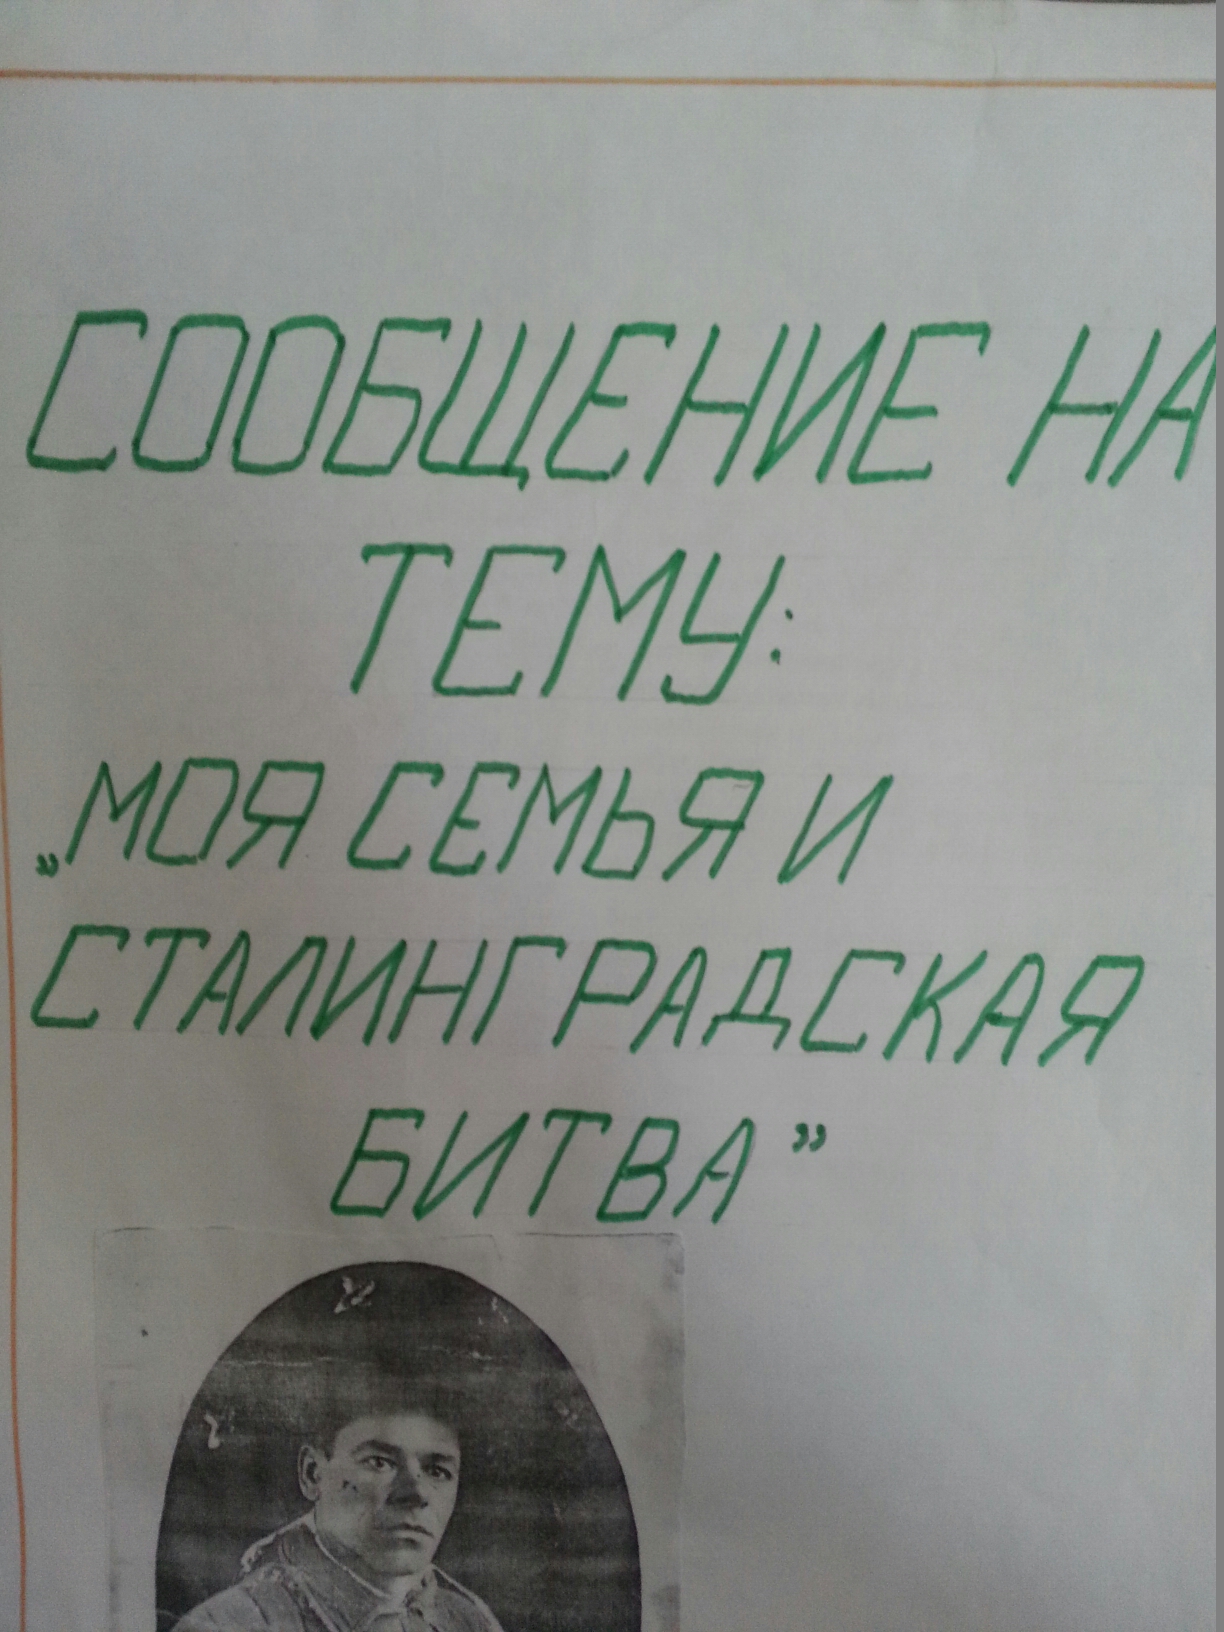 СООБЩЕНИЕ НА
ТЕМУ:
„МОЯ СЕМЬЯ И
СТАЛИНГРАДСКАЯ
БИТВА”